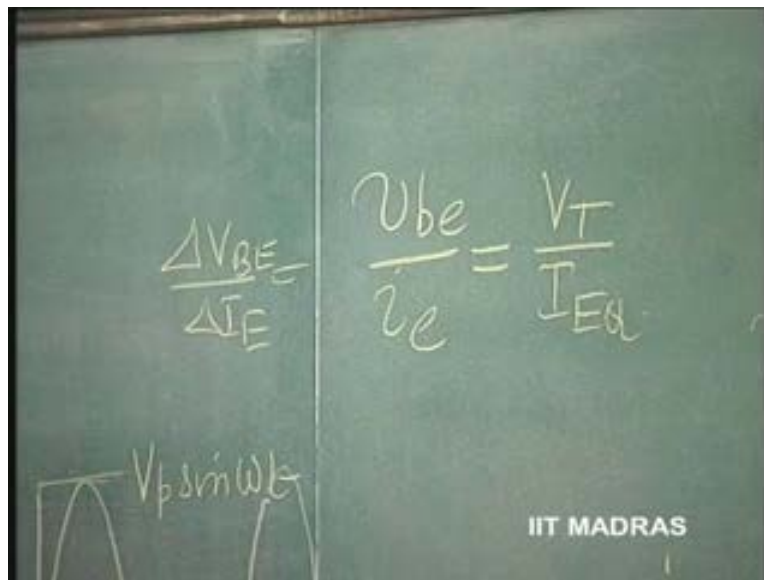 ΔV_BE / ΔI_E = v_be / i_e = V_T / I_EQ
V_p sin ωt
IIT MADRAS